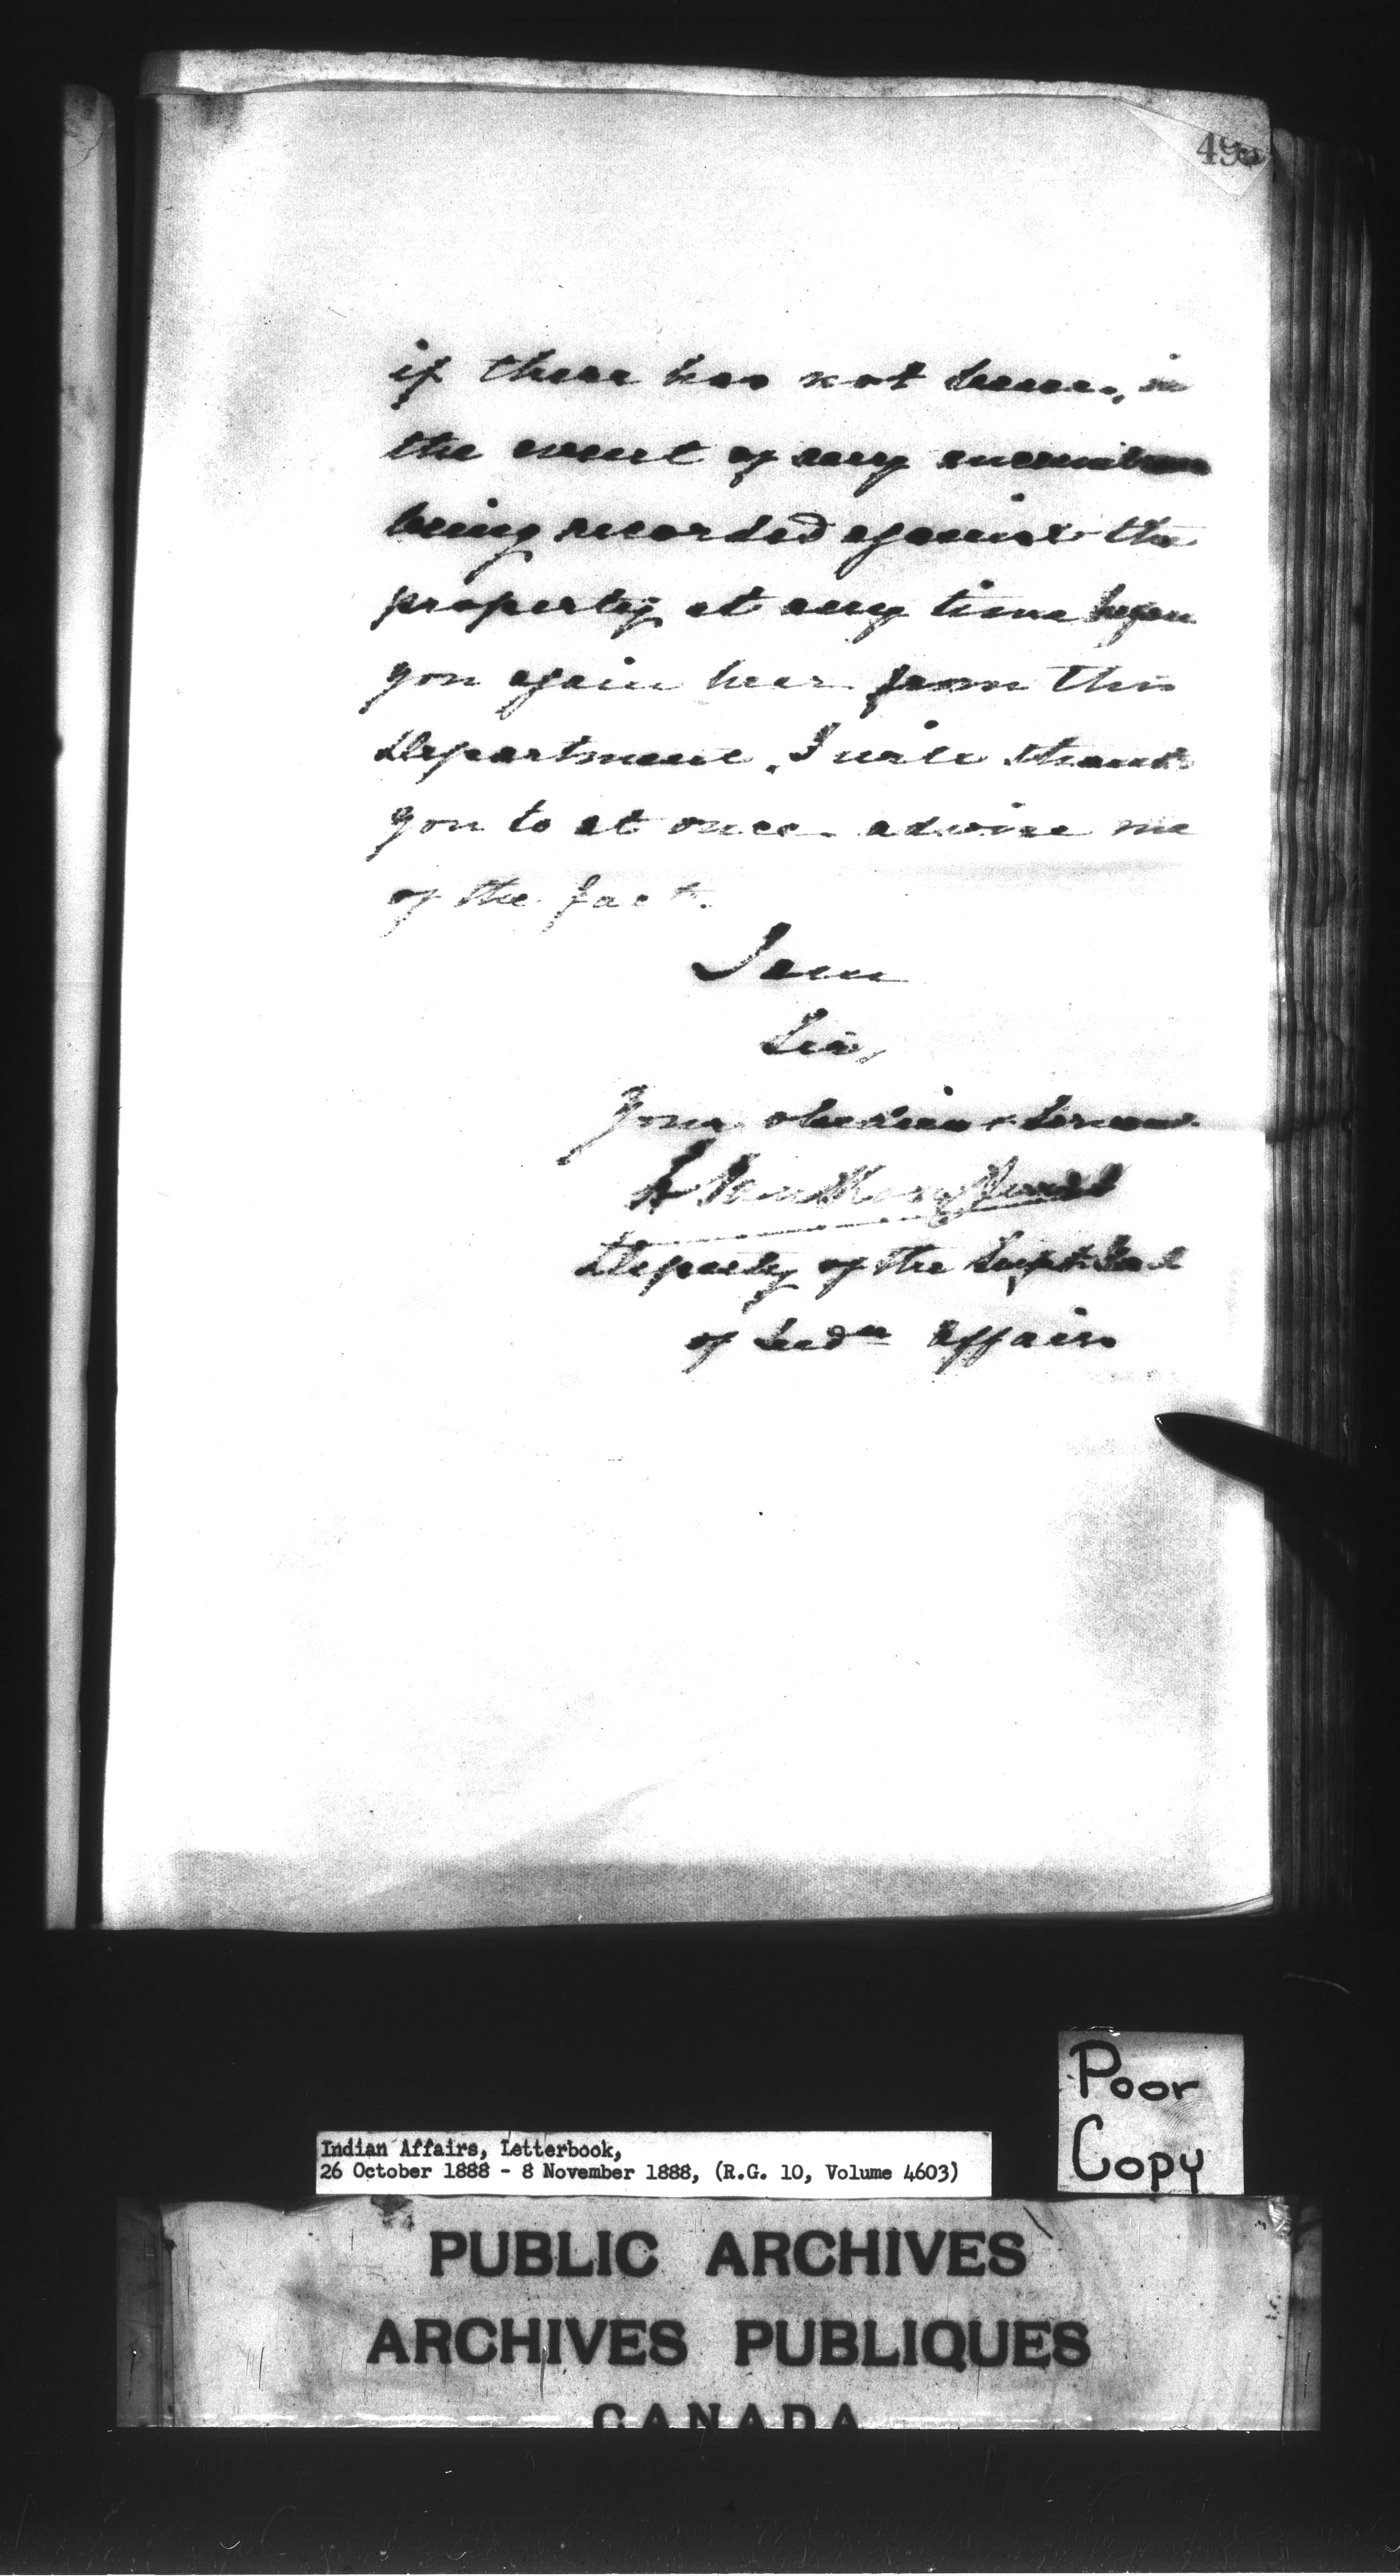 if there has not been, in
the event of any
being recorded against the
property at any time before
you again hear from this
Department, I will thank
you to at once advise me
of the fact.
I am
Sir,
Your obedient Servant
L Vankoughnet
Deputy of the Supt. Genl
of Indn Affairs
Poor
Copy
Indian Affairs, Letterbook,
26 October 1888 - 8 November 1888, (R.G. 10, Volume 4603)
PUBLIC ARCHIVES
ARCHIVES PUBLIQUES
CANADA